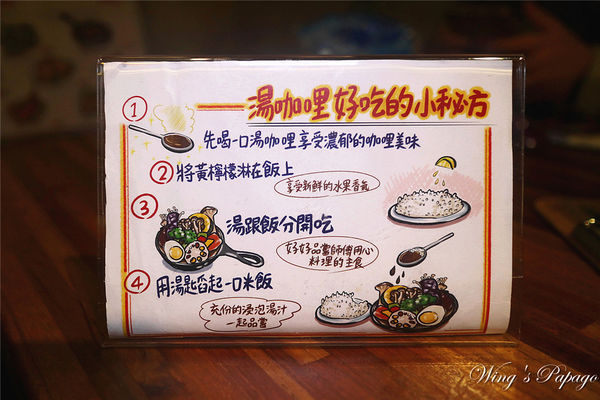 湯咖哩好吃的小秘方
①
先喝一口湯咖哩享受濃郁的咖哩美味
②將黃檸檬淋在飯上
享受新鮮的水果香氣
③
湯跟飯分開吃
好好品嘗師傅用心
料理的主食
④用湯匙舀起一口米飯
充份的浸泡湯汁
一起品嘗
Wing's Papago